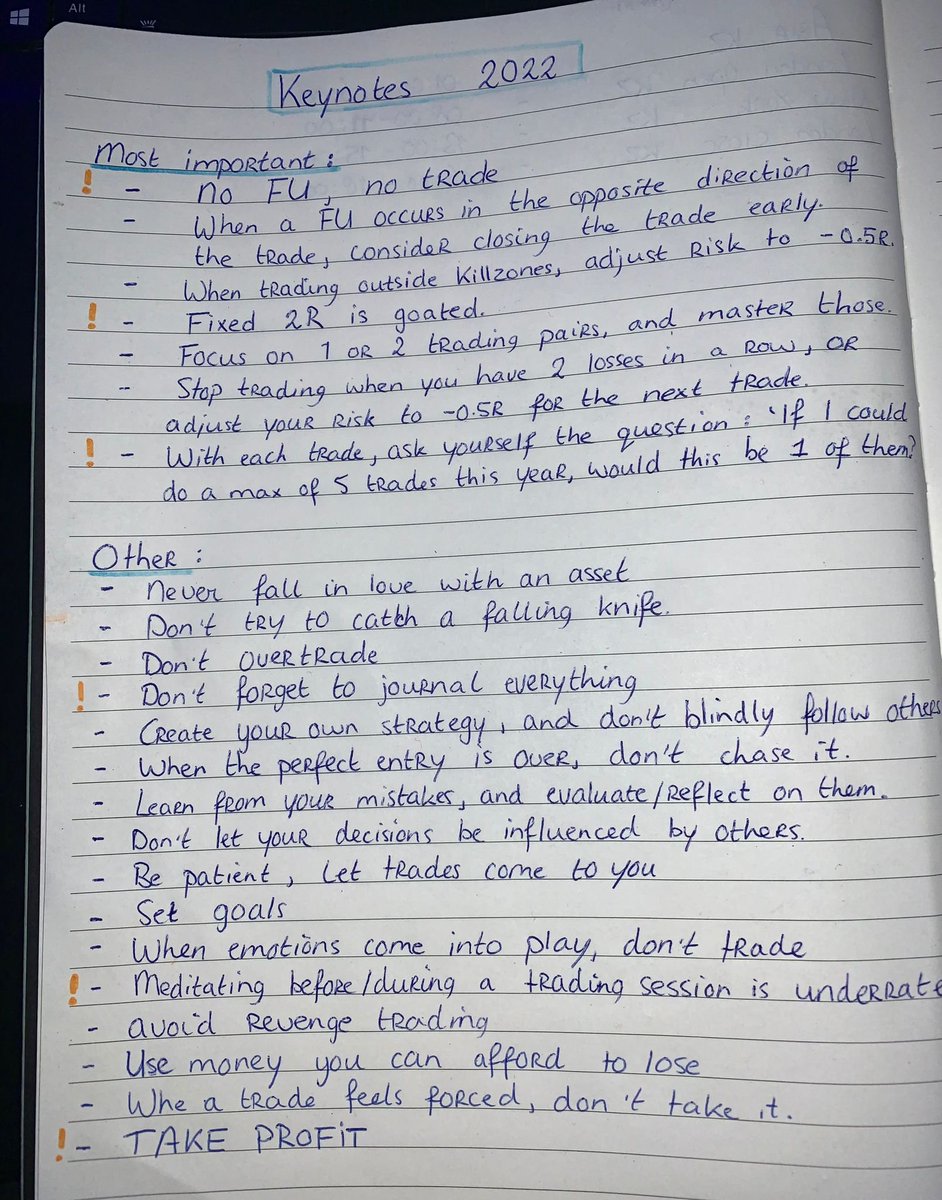 Alt
Keynotes 2022
Most important:
! - no FU, no trade
- When a FU occurs in the opposite direction of
the trade, consider closing the trade early.
- When trading outside Killzones, adjust Risk to -0.5R.
! - Fixed 2R is goated.
- Focus on 1 or 2 trading pairs, and master those.
- Stop trading when you have 2 losses in a row, or
adjust your Risk to -0.5R for the next trade.
! - With each trade, ask yourself the question: 'If I could
do a max of 5 trades this year, would this be 1 of them?
Other:
- Never fall in love with an asset
- Don't try to catch a falling knife.
- Don't overtrade
! - Don't forget to journal everything
- Create your own strategy, and don't blindly follow others
- When the perfect entry is over, don't chase it.
- Learn from your mistakes, and evaluate/reflect on them.
- Don't let your decisions be influenced by others.
- Be patient, let trades come to you
- Set goals
- When emotions come into play, don't trade
! - Meditating before/during a trading session is underrate
- avoid revenge trading
- Use money you can afford to lose
- Whe a trade feels forced, don't take it.
! - TAKE PROFIT